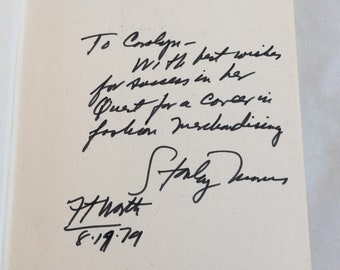 To Carolyn-
With best wishes
for success in her
Quest for a career in
fashion merchandising
Stanley Marcus
Ft Worth
8.19.79